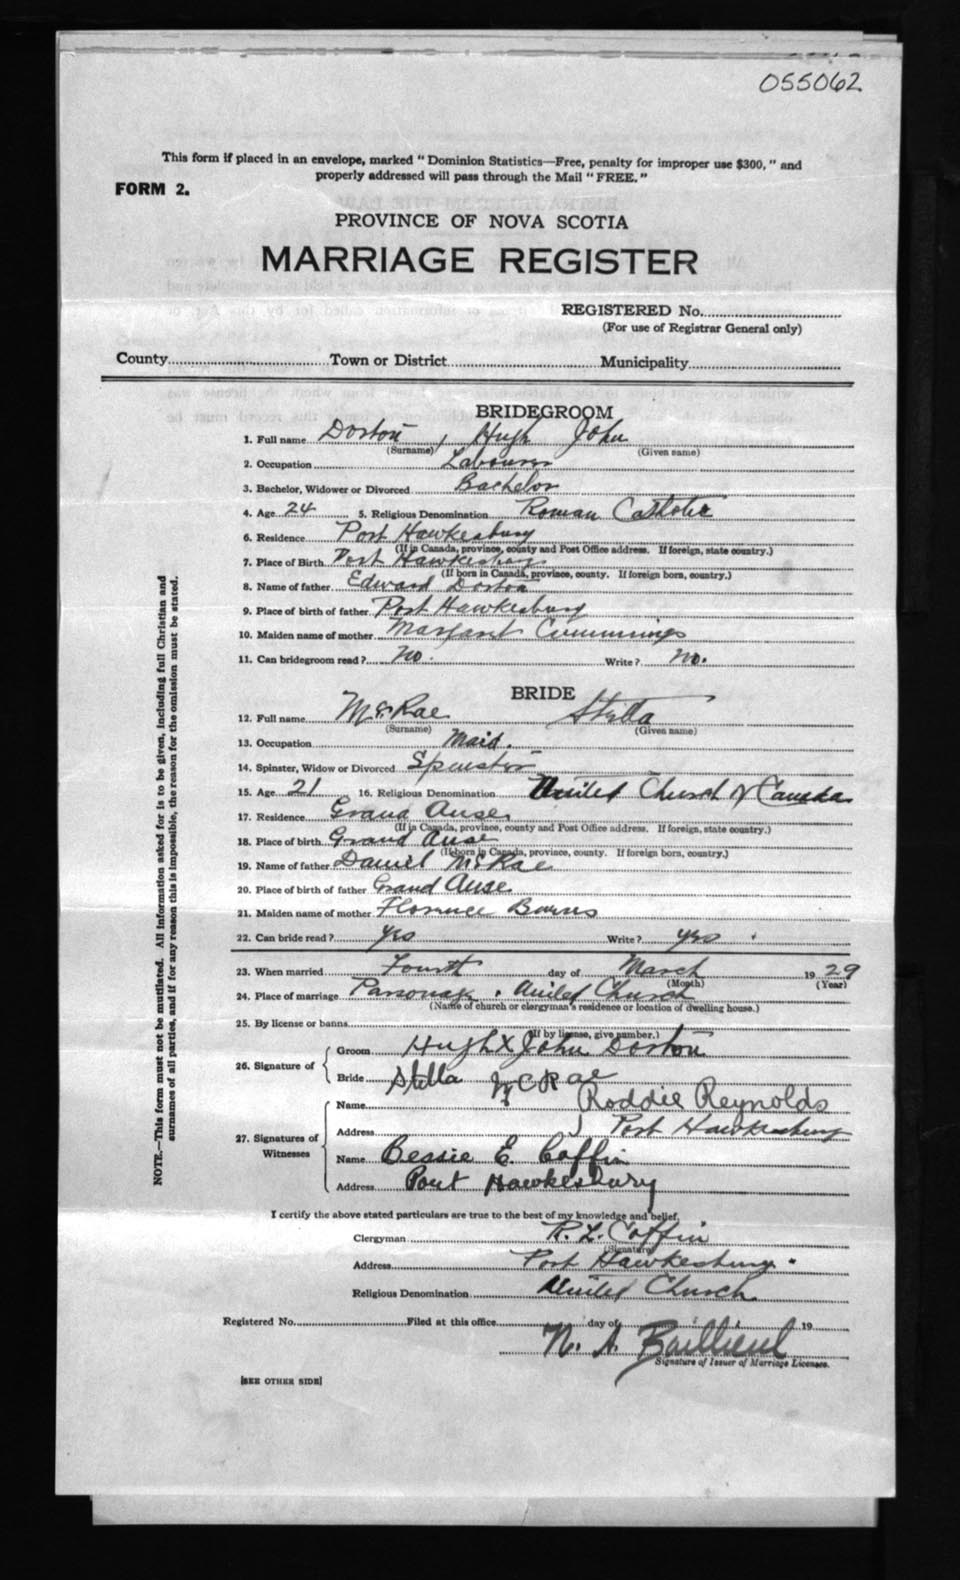 055062
This form if placed in an envelope, marked "Dominion Statistics—Free, penalty for improper use $300," and
properly addressed will pass through the Mail "FREE."
FORM 2.
PROVINCE OF NOVA SCOTIA
MARRIAGE REGISTER
REGISTERED No.
(For use of Registrar General only)
County Town or District Municipality
BRIDEGROOM
1. Full name Dorton, Hugh John
(Surname) (Given name)
2. Occupation Labourer
3. Bachelor, Widower or Divorced Bachelor
4. Age 24 5. Religious Denomination Roman Catholic
6. Residence Port Hawkesbury
(If in Canada, province, county and Post Office address. If foreign, state country.)
7. Place of Birth Port Hawkesbury
(If born in Canada, province, county. If foreign born, country.)
8. Name of father Edward Dorton
9. Place of birth of father Port Hawkesbury
10. Maiden name of mother Margaret Cummings
11. Can bridegroom read? No. Write? No.
BRIDE
12. Full name McRae Stella
(Surname) (Given name)
13. Occupation Maid.
14. Spinster, Widow or Divorced Spinster
15. Age 21 16. Religious Denomination United Church of Canada
17. Residence Grand Anse
(If in Canada, province, county and Post Office address. If foreign, state country.)
18. Place of birth Grand Anse
(If born in Canada, province, county. If foreign born, country.)
19. Name of father Daniel McRae
20. Place of birth of father Grand Anse
21. Maiden name of mother Florence Burns
22. Can bride read? Yes Write? Yes
23. When married Fourth day of March 1929
(Month) (Year)
24. Place of marriage Parsonage. United Church
(Name of church or clergyman's residence or location of dwelling house.)
25. By license or banns
(If by license, give number.)
26. Signature of Groom Hugh X John Dorton
Bride Stella McRae
27. Signatures of Witnesses Name Roddie Reynolds
Address Port Hawkesbury
Name Bessie E. Coffin
Address Port Hawkesbury
I certify the above stated particulars are true to the best of my knowledge and belief.
Clergyman R. L. Coffin
(Signature)
Address Port Hawkesbury.
Religious Denomination United Church
Registered No. Filed at this office day of 19
N. A. Baillieul
Signature of Issuer of Marriage Licenses.
[SEE OTHER SIDE]
NOTE.—This form must not be mutilated. All information asked for is to be given, including full Christian and
surnames of all parties, and if for any reason this is impossible, the reason for the omission must be stated.